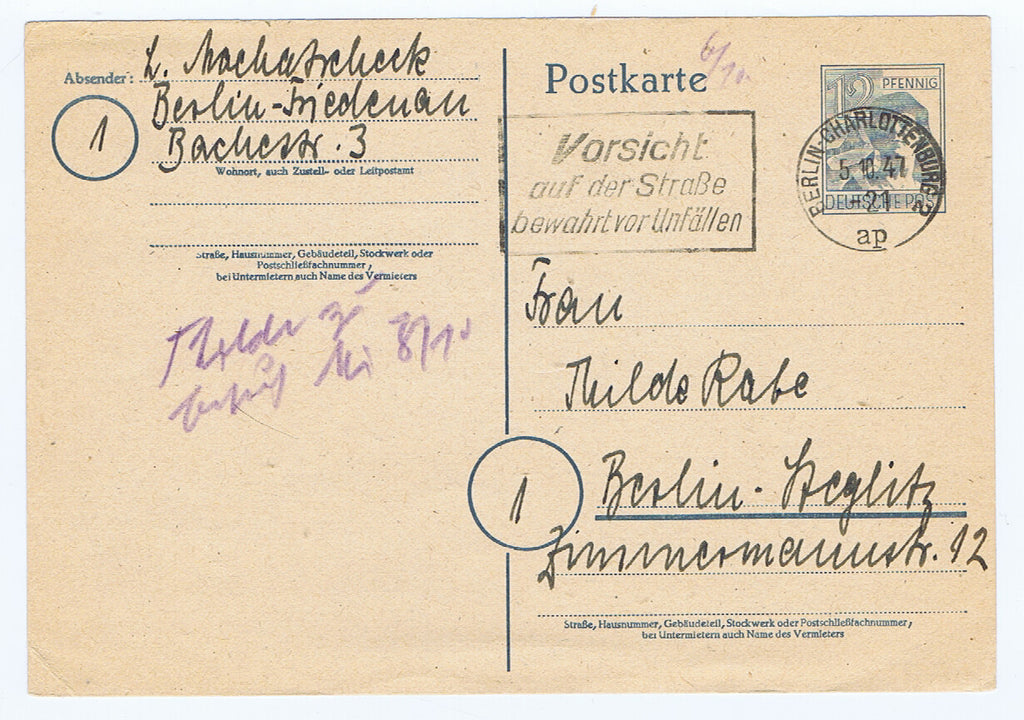 Absender:
L. Machatscheck
Berlin-Friedenau
1
Bachestr. 3
Wohnort, auch Zustell- oder Leitpostamt
Straße, Hausnummer, Gebäudeteil, Stockwerk oder
Postschließfachnummer,
bei Untermietern auch Name des Vermieters
8/10
Postkarte
6/10
12 PFENNIG
DEUTSCHE POST
BERLIN-CHARLOTTENBURG 2
5.10.47
-21
ap
Vorsicht
auf der Straße
bewahrt vor Unfällen
Frau
Thilde Rabe
1
Berlin-Steglitz
Zimmermannstr. 12
Straße, Hausnummer, Gebäudeteil, Stockwerk oder Postschließfachnummer,
bei Untermietern auch Name des Vermieters